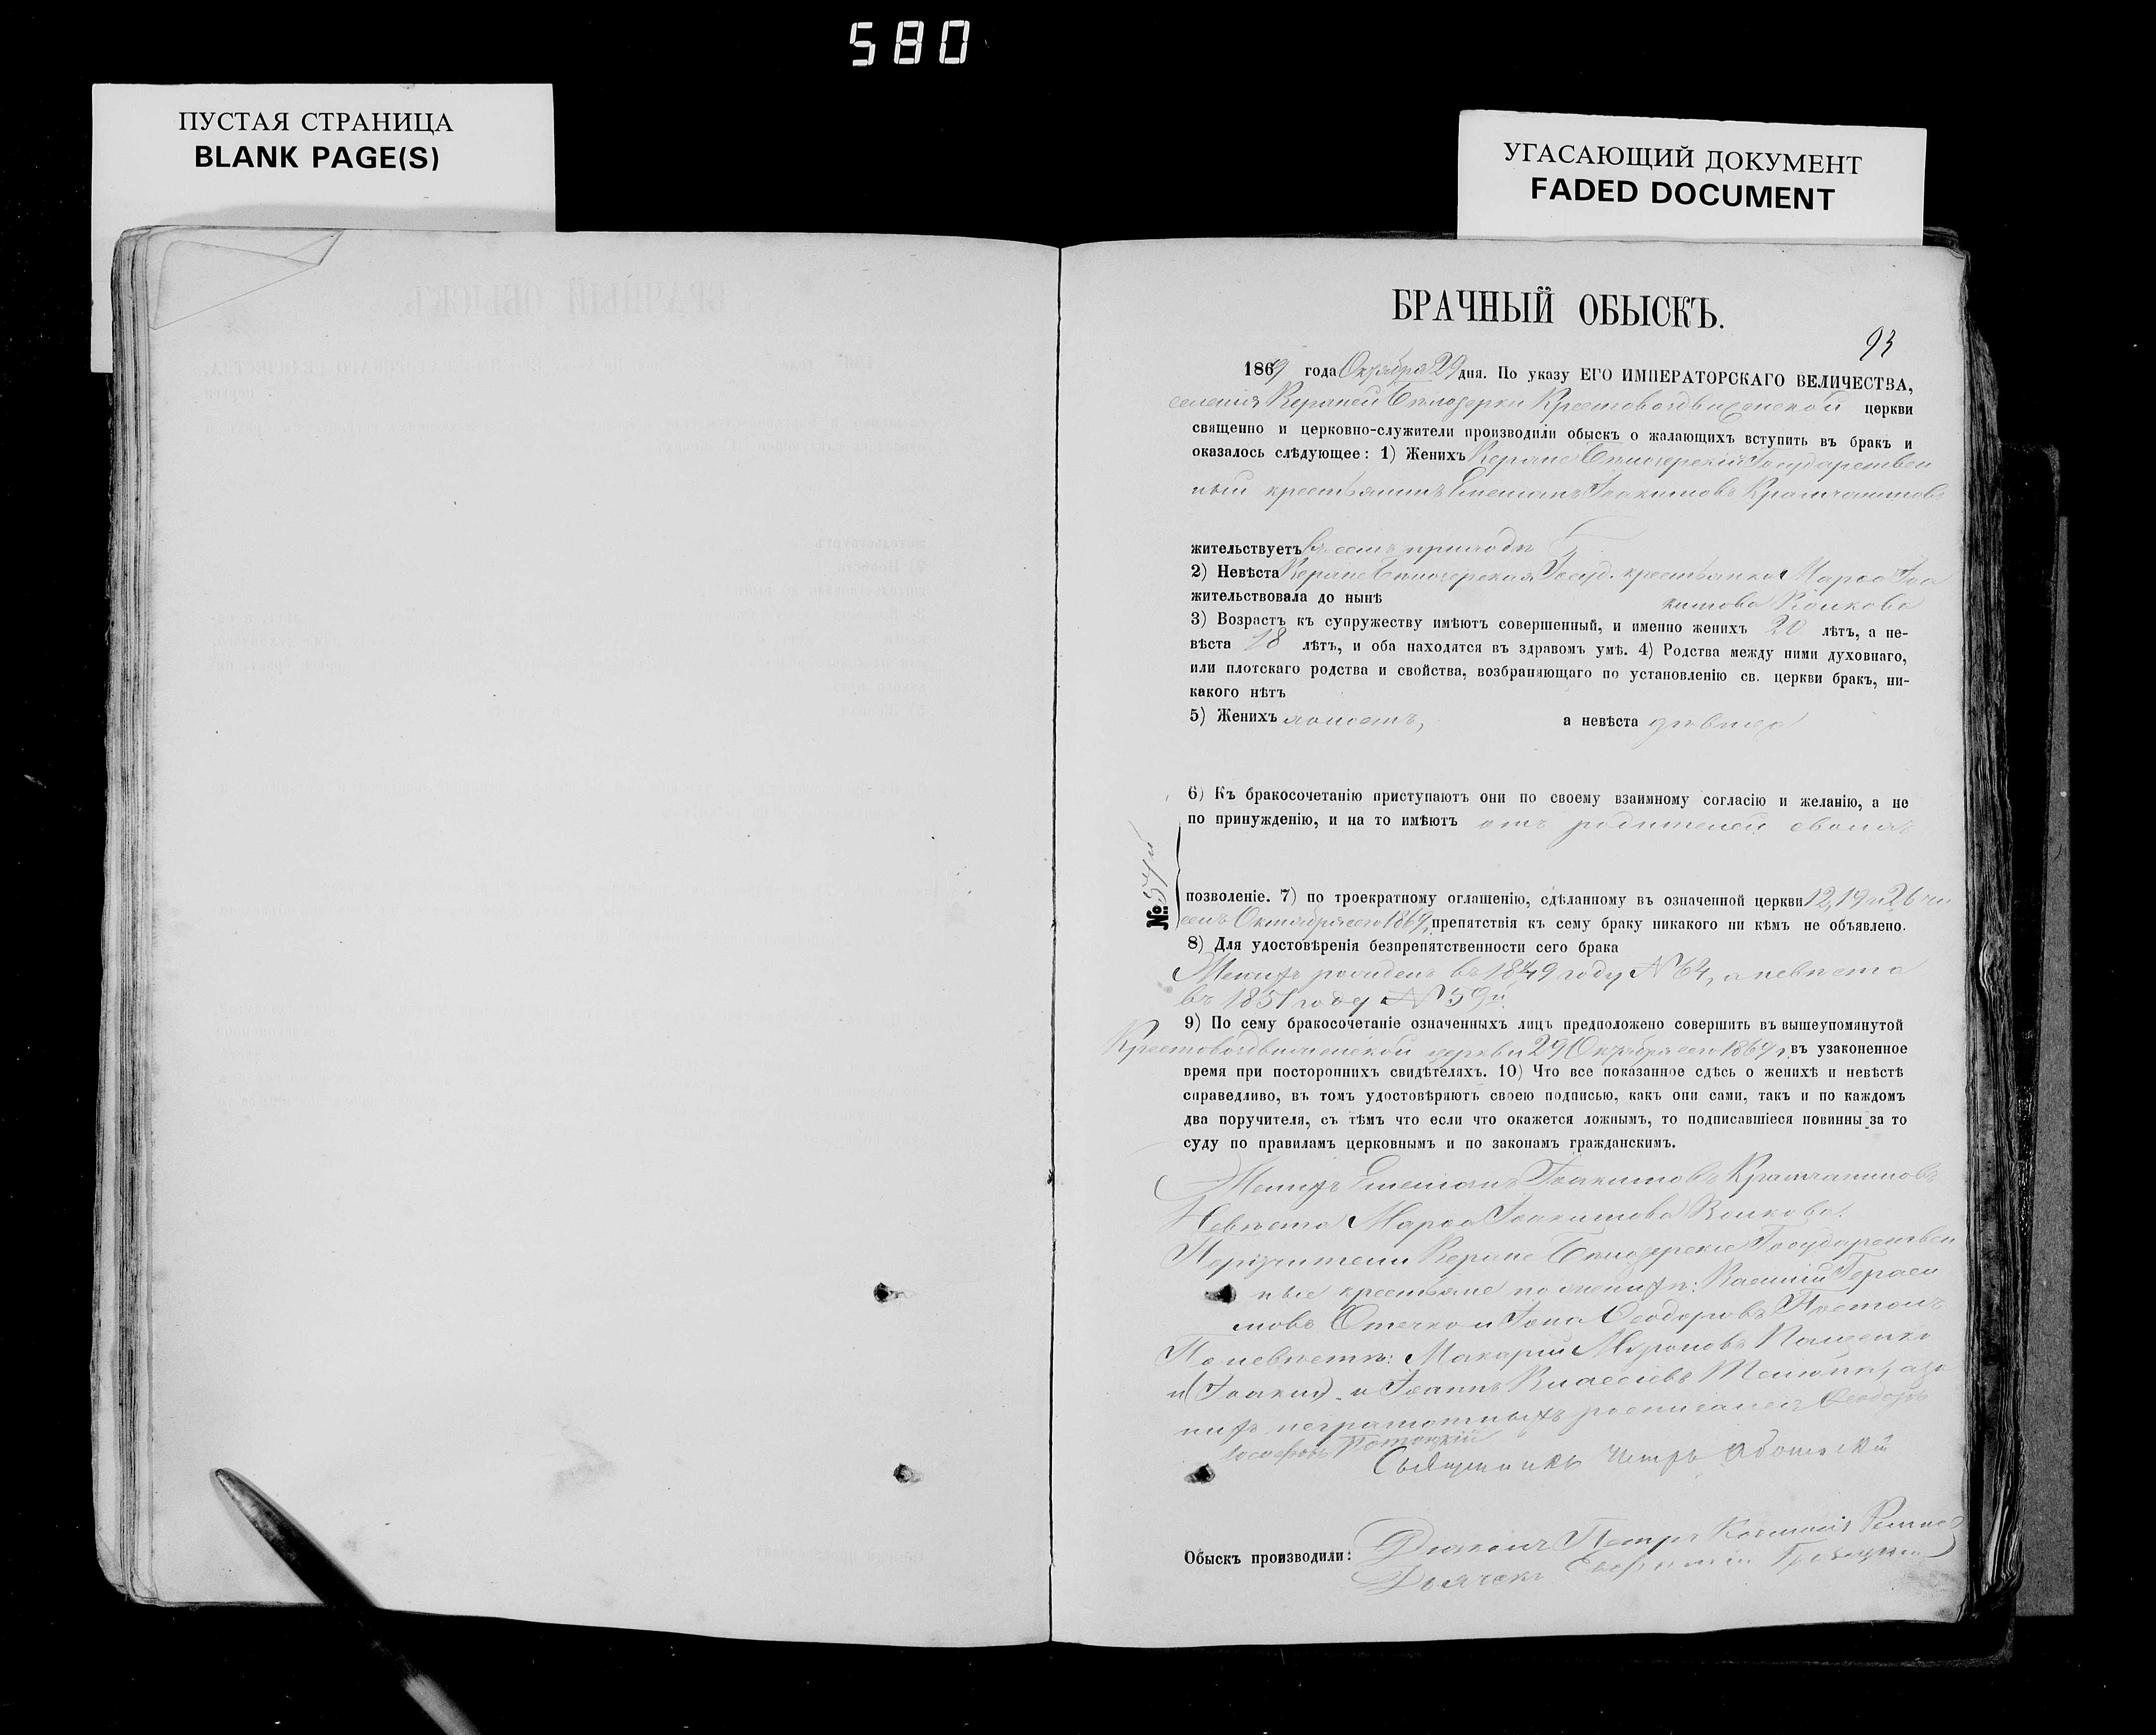 580
ПУСТАЯ СТРАНИЦА
BLANK PAGE(S)
УГАСАЮЩИЙ ДОКУМЕНТ
FADED DOCUMENT
БРАЧНЫЙ ОБЫСКЪ.
93
1869 года Октября 29 дня. По указу ЕГО ИМПЕРАТОРСКАГО ВЕЛИЧЕСТВА,
селения Верхней Бѣлозерки Крестовоздвиженской церкви
священно и церковно-служители производили обыскъ о жалающихъ вступить въ бракъ и
оказалось слѣдующее: 1) Женихъ Верхне Бѣлозерскій Государствен
ный крестьянинъ Емеліанъ Іоакимовъ
жительствуетъ въ семъ приходѣ
2) Невѣста Верхне Бѣлозерская Госуд. крестьянка Марѳа Іоа
жительствовала до нынѣ кимова Волкова
3) Возрастъ къ супружеству имѣютъ совершенный, и именно женихъ 20 лѣтъ, а не-
вѣста 18 лѣтъ, и оба находятся въ здравомъ умѣ. 4) Родства между ними духовнаго,
или плотскаго родства и свойства, возбраняющаго по установленію св. церкви бракъ, ни-
какого нѣтъ
5) Женихъ холостъ, а невѣста дѣвица
6) Къ бракосочетанію приступаютъ они по своему взаимному согласію и желанію, а не
по принужденію, и на то имѣютъ отъ родителей своихъ
№ 54й
позволеніе. 7) по троекратному оглашенію, сдѣланному въ означенной церкви 12, 19 и 26 чи
селъ Октября сего 1869 г. препятствія къ сему браку никакого ни кѣмъ не объявлено.
8) Для удостовѣренія безпрепятственности сего брака
Женихъ рожденъ въ 1849 году № 64, а невѣста
въ 1851 году № 59й
9) По сему бракосочетаніе означенныхъ лицъ предположено совершить въ вышеупомянутой
Крестовоздвиженской церкви 29 Октября сего 1869 г. въ узаконенное
время при постороннихъ свидѣтеляхъ. 10) Что все показанное сдѣсь о женихѣ и невѣстѣ
справедливо, въ томъ удостовѣряютъ своею подписью, какъ они сами, такъ и по каждомъ
два поручителя, съ тѣмъ что если что окажется ложнымъ, то подписавшіеся повинны за то
суду по правиламъ церковнымъ и по законамъ гражданскимъ.
Женихъ Емеліанъ Іоакимовъ
Невѣста Марѳа Іоакимова Волкова.
Поручители Верхне Бѣлозерскіе Государствен
ные крестьяне по женихѣ: Гераси
мовъ и Ѳеодоровъ
По невѣстѣ: Макарій Мѵроновъ Пащенко
и Іоаннъ Власіевъ а за
нихъ неграмотныхъ росписался Ѳеодоръ
Іосифовъ
Священникъ Петръ
Обыскъ производили: Діаконъ Петръ
Дьячекъ